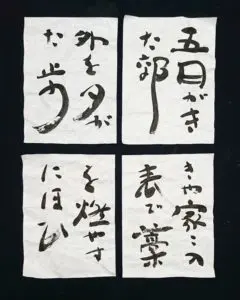 五日がき
た郊
外を夕が
た歩
きや家々の
表で藁
を燃やす
にほひ